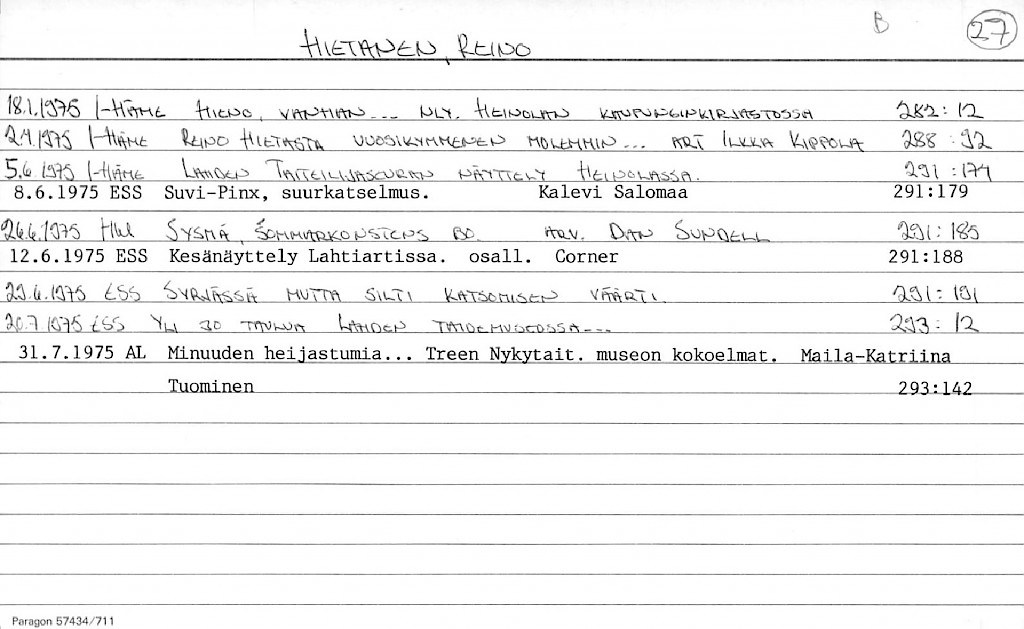 B 27
HIETANEN, REINO
18.1.1975 I-HÄME HIENO, VANHAN... NÄY. HEINOLAN KAUPUNGINKIRJASTOSSA 282:12
2.4.1975 I-HÄME REINO HIETASTA VUOSIKYMMENEN MOLEMMIN... ART ILKKA KIPPOLA 288:92
5.6.1975 I-HÄME LAHDEN TAITEILIJASEURAN NÄYTTELY HEINOLASSA. 291:174
8.6.1975 ESS Suvi-Pinx, suurkatselmus. Kalevi Salomaa 291:179
26.6.1975 SYSMÄ, SOMMARKONSTENS BO. ARV. DAN SUNDELL 291:185
12.6.1975 ESS Kesänäyttely Lahtiartissa. osall. Corner 291:188
29.6.1975 ESS SYRJÄSSÄ MUTTA SILTI KATSOMISEN VÄÄRTI. 291:191
20.7.1975 ESS YLI 30 TAULUA LAHDEN TAIDEMUSEOSSA... 293:12
31.7.1975 AL Minuuden heijastumia... Treen Nykytait. museon kokoelmat. Maila-Katriina
Tuominen 293:142
Paragon 57434/711